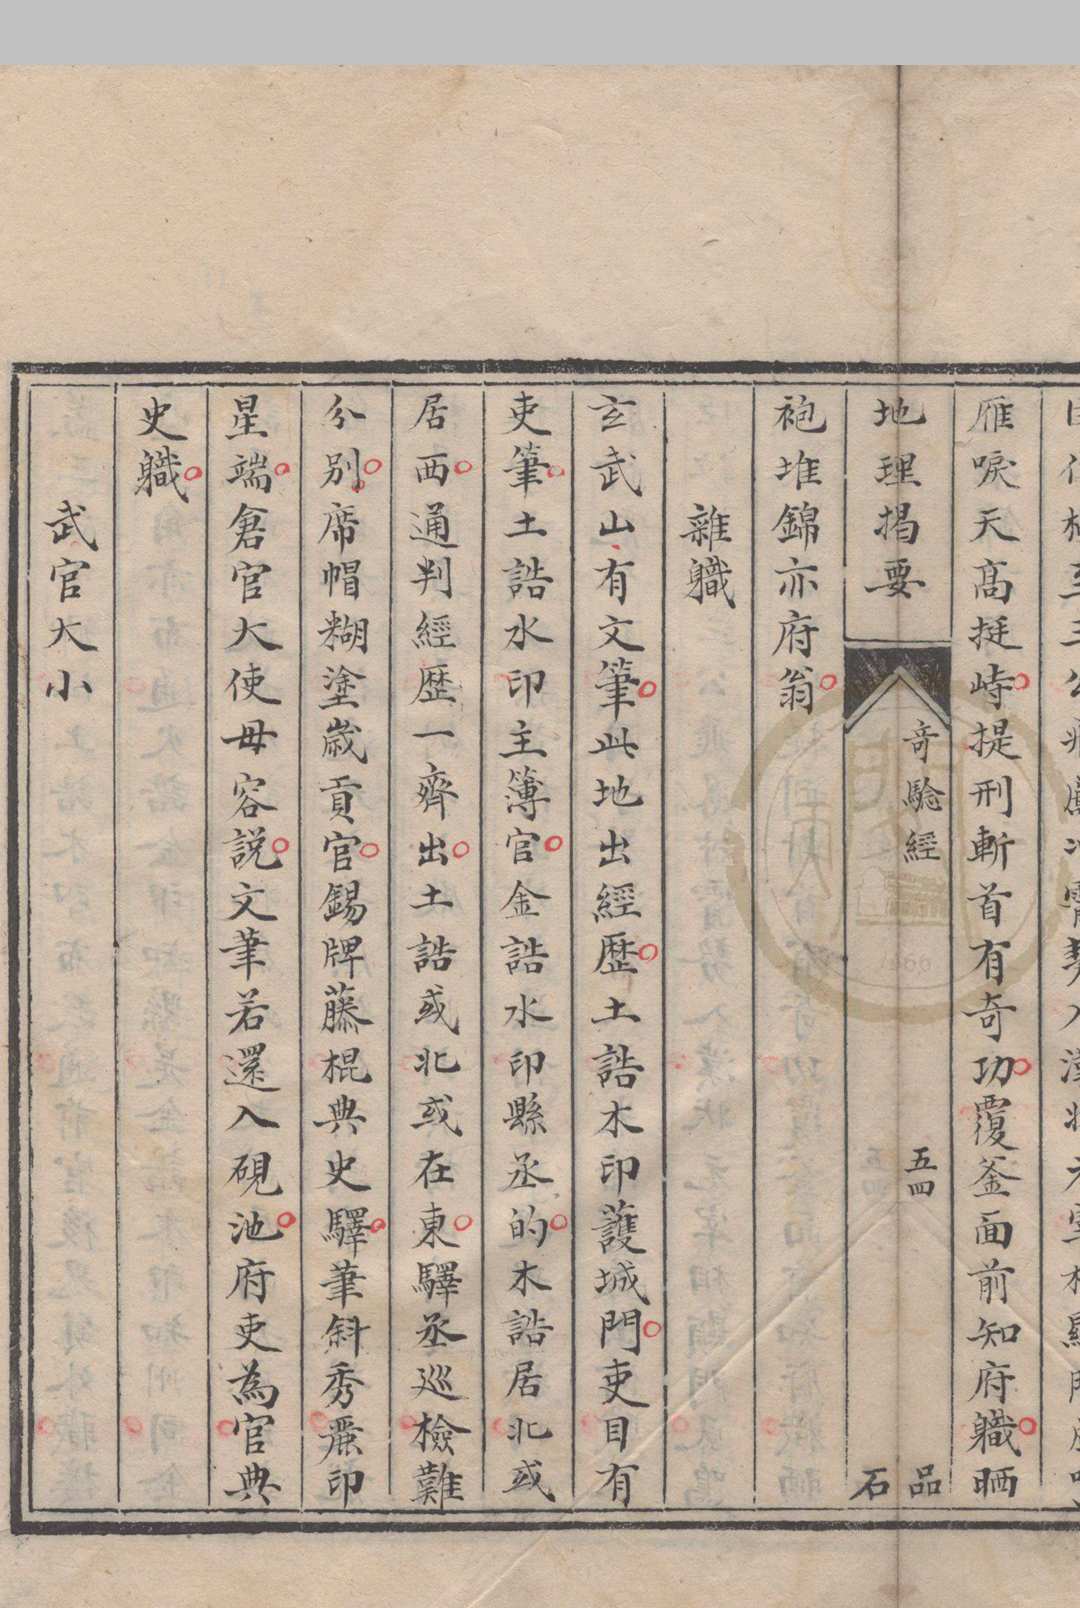 雁唳天高挺峙提刑斬首有奇功覆釜面前知府職晒
地理揭要
奇驗經
五四
品石
袍堆錦亦府翁
雜職
玄武山有文筆此地出經歷土誥木印護城門吏目有
吏筆土誥水印主簿官金誥水印縣丞的木誥居北或
居西通判經歷一齊出土誥或北或在東驛丞巡檢難
分別席帽糊塗歲貢官錫牌藤棍典史驛筆斜秀麗印
星端倉官大使毋容說文筆若還入硯池府吏為官典
史職
武官大小